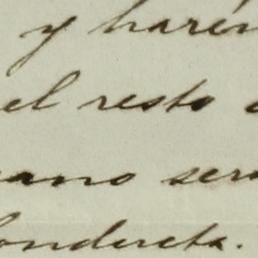 y harén
el resto
ano ser
conducta.